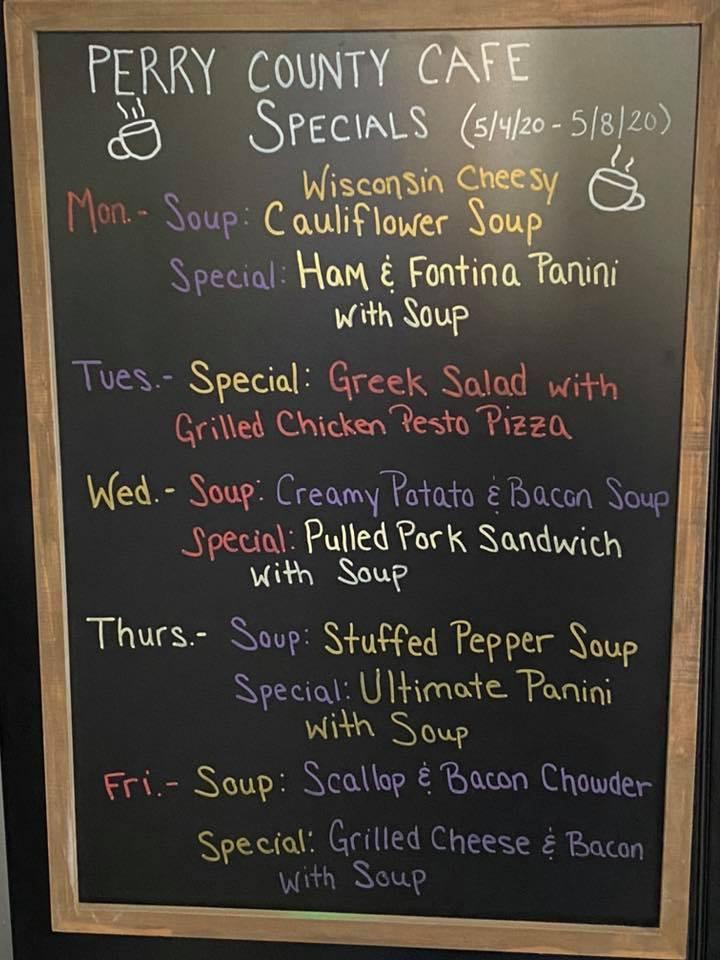 PERRY COUNTY CAFE
SPECIALS (5/4/20 - 5/8/20)
Wisconsin Cheesy
Mon.- Soup: Cauliflower Soup
Special: Ham & Fontina Panini
with Soup
Tues.- Special: Greek Salad with
Grilled Chicken Pesto Pizza
Wed.- Soup: Creamy Potato & Bacon Soup
Special: Pulled Pork Sandwich
with Soup
Thurs.- Soup: Stuffed Pepper Soup
Special: Ultimate Panini
with Soup
Fri.- Soup: Scallop & Bacon Chowder
Special: Grilled Cheese & Bacon
with Soup